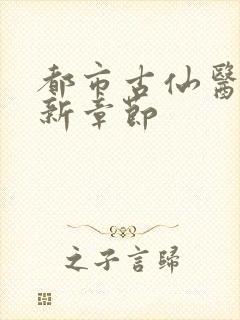 都市古仙醫
新章節
之子言歸